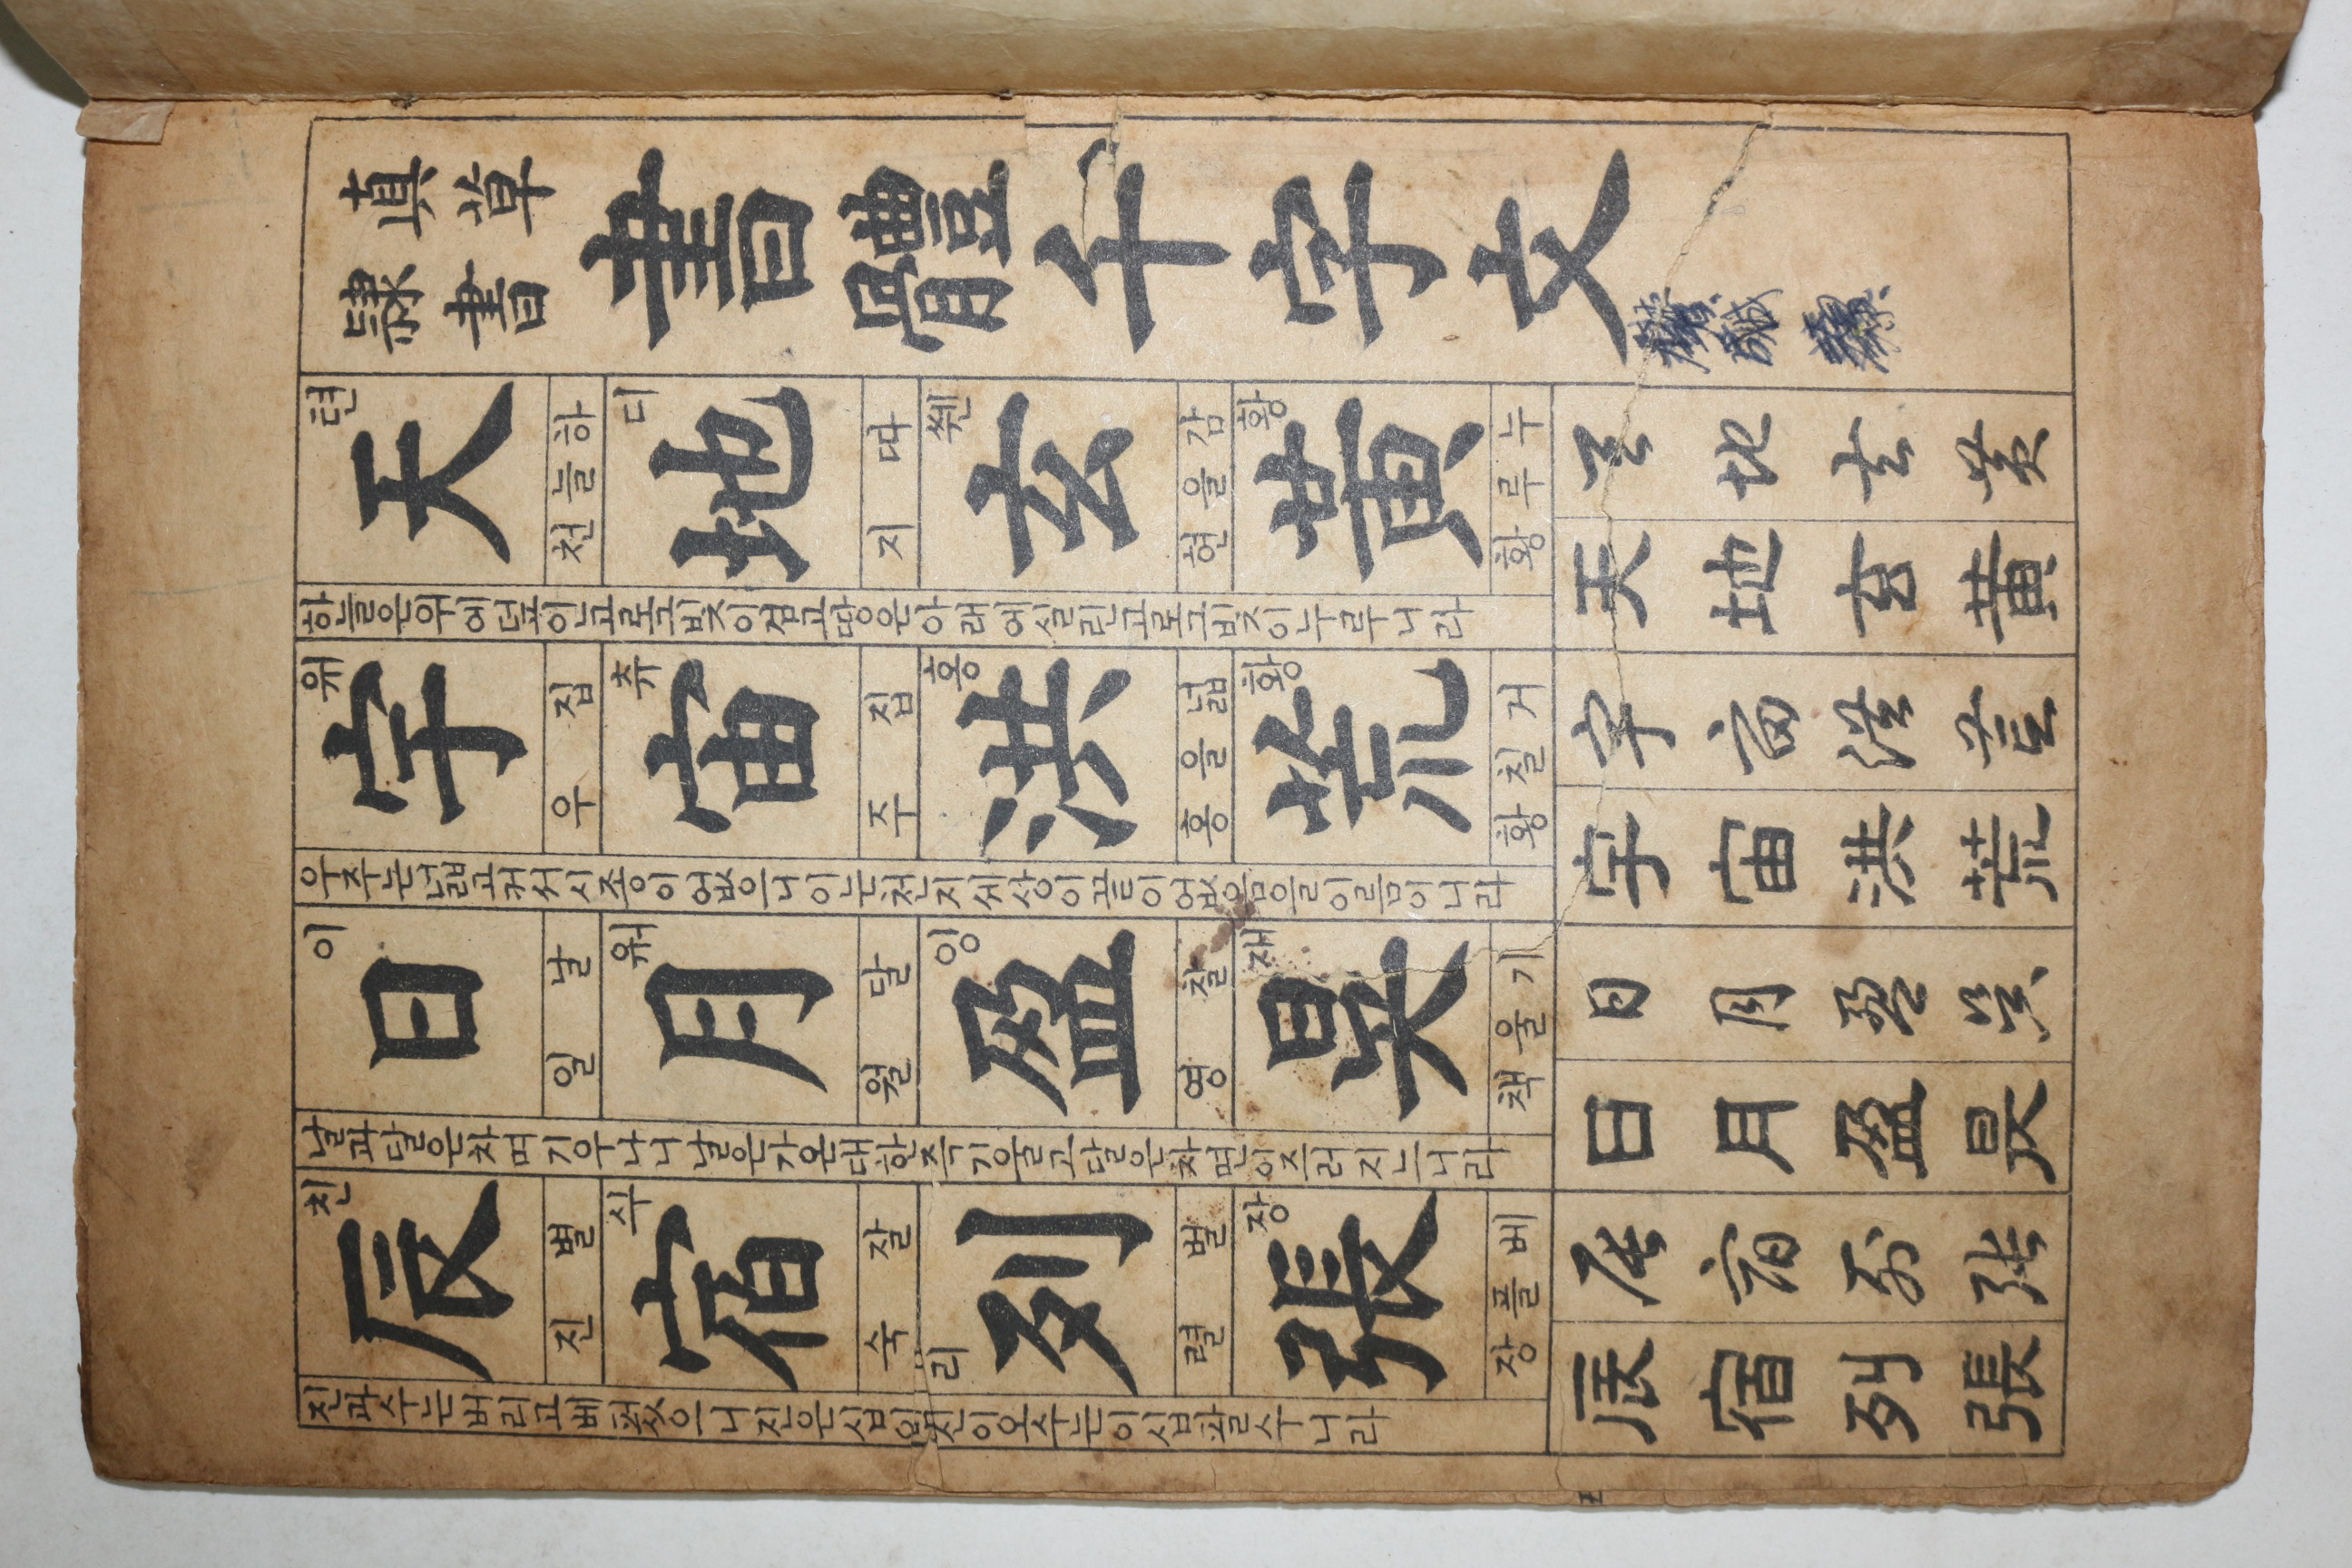 眞草
隷書
書體千字文
텬 天 하늘 천
디 地 따 지
쒠 玄 감을 현
황 黃 누루 황
天地玄黃
天地玄黃
하늘은위에덮인고로그빗이검고땅은아래에실린고로그빗이누루니라
위 宇 집 우
츄 宙 집 주
홍 洪 넓을 홍
황 荒 거칠 황
宇宙洪荒
宇宙洪荒
우주는넓고커서시종이없으니이는천지세상이끝이없음을이름이니라
이 日 날 일
워 月 달 월
잉 盈 찰 영
재 昃 기울 책
日月盈昃
日月盈昃
날과달은차며기우나니날은가온대한즉기울고달은차면이즈러지느니라
친 辰 별 진
수 宿 잘 숙
리 列 벌 렬
장 張 베플 장
辰宿列張
辰宿列張
진과수는버리고베첫으니진은십이진이오수는이십팔수니라